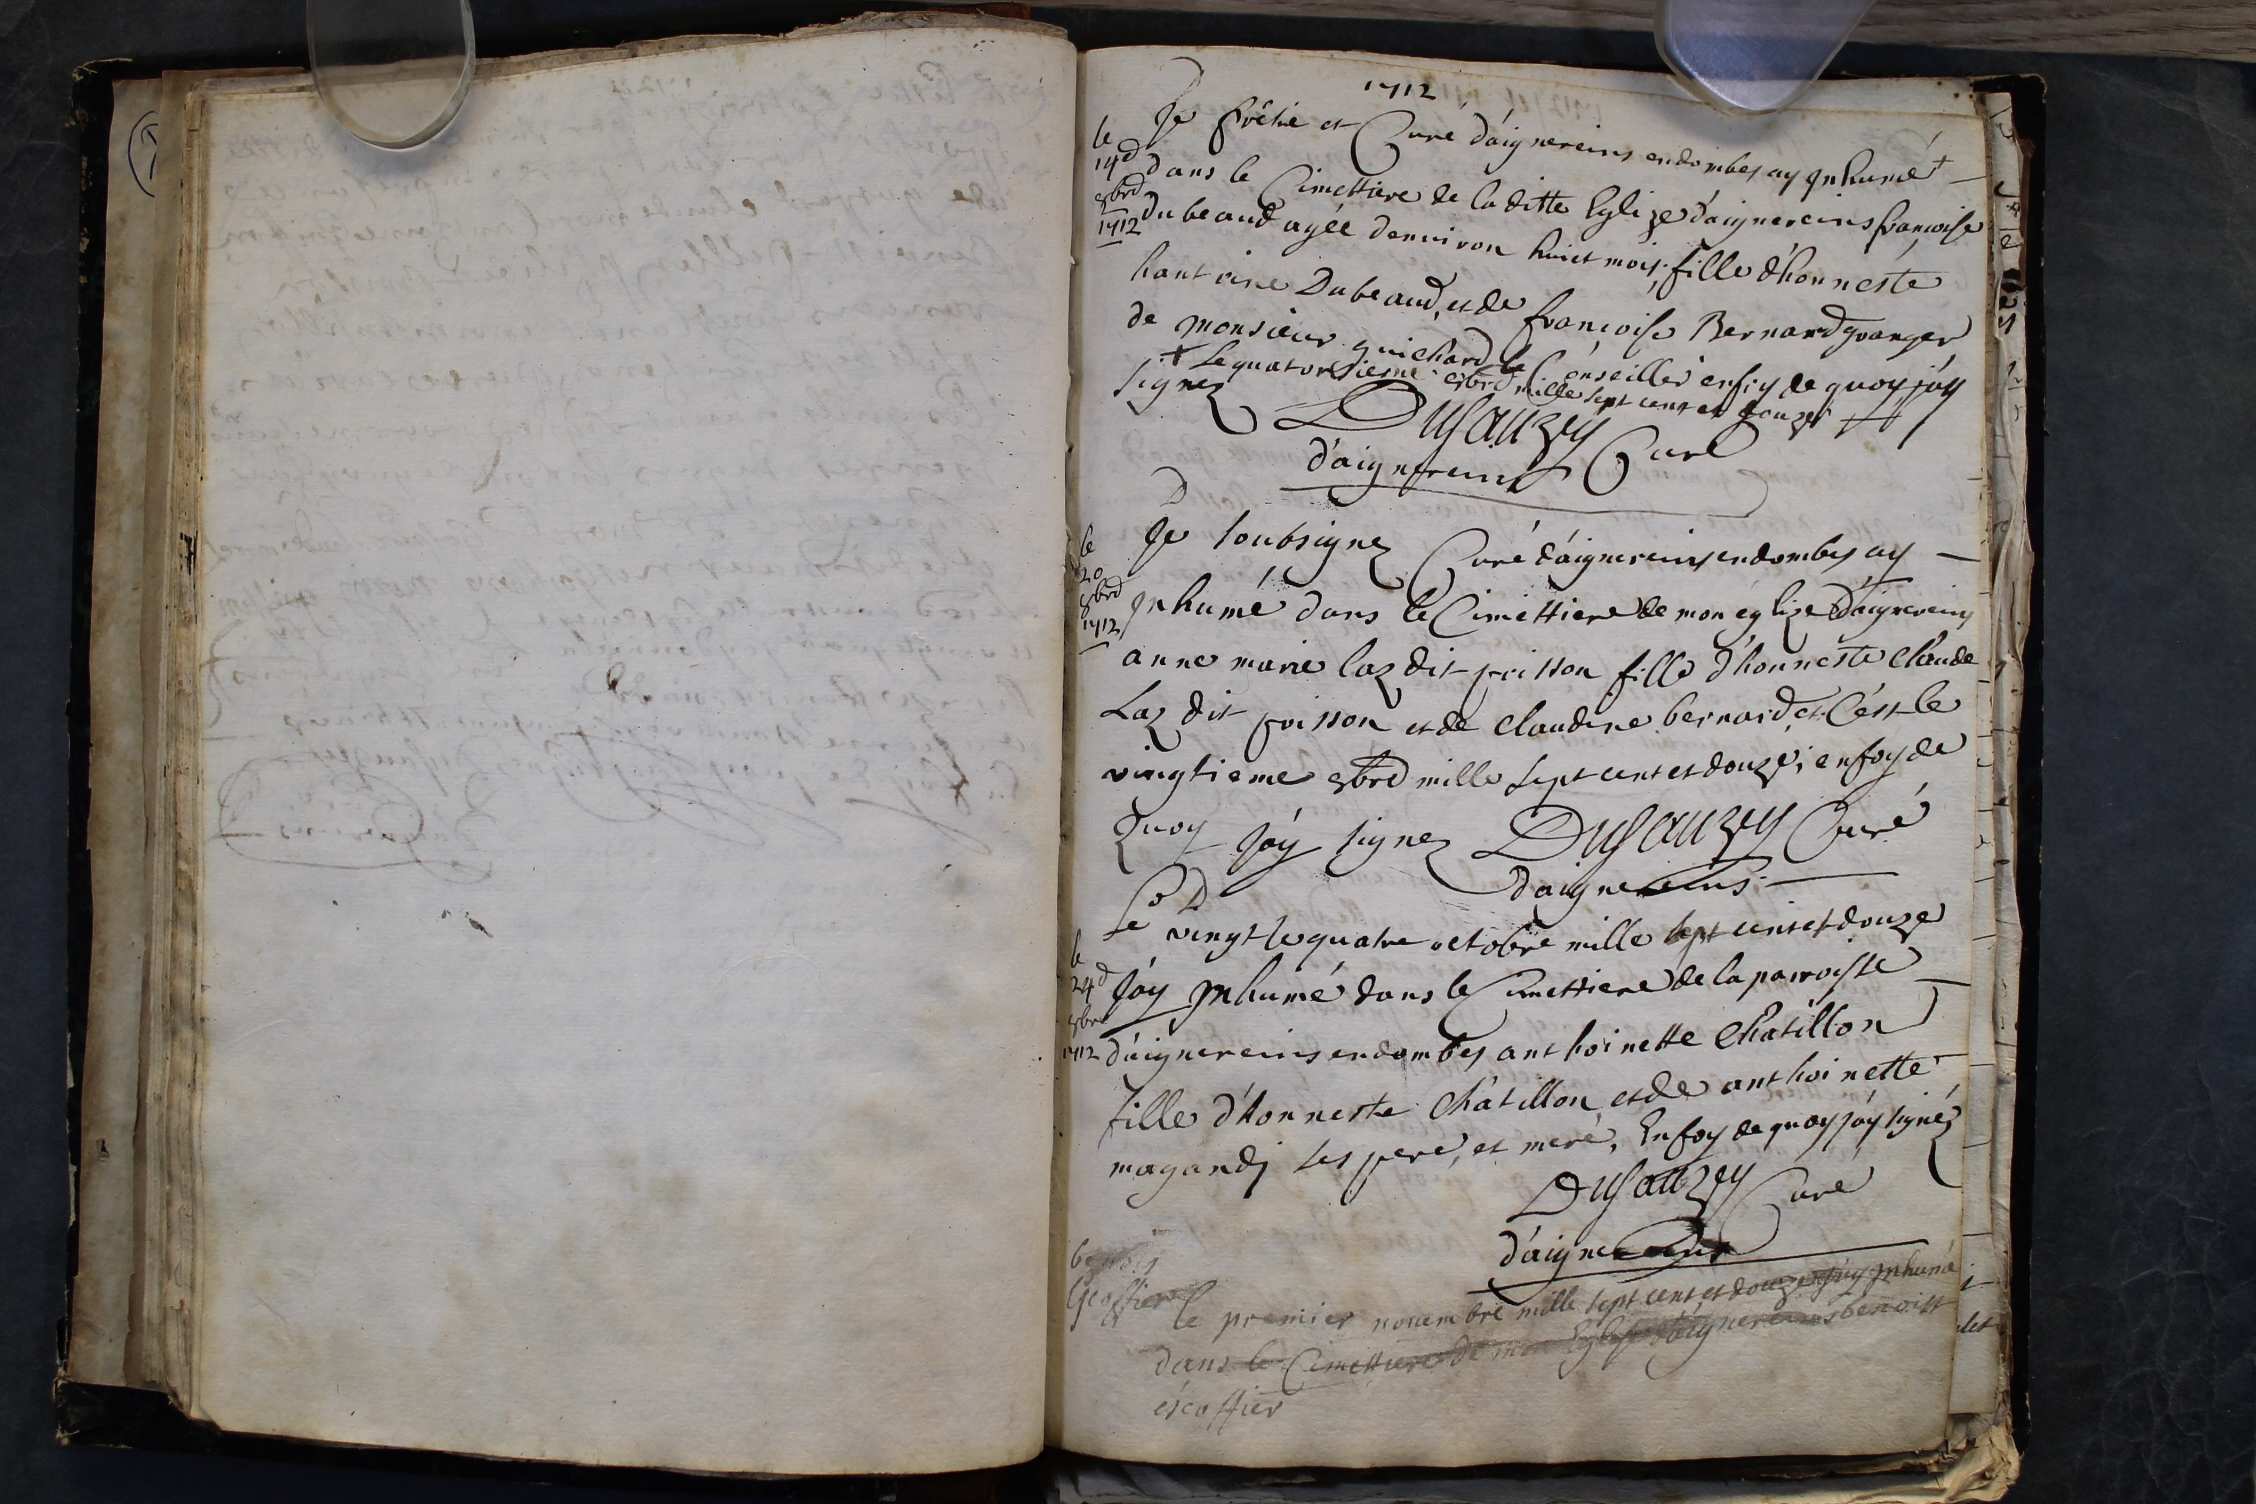 1712
D
Je prêtre et Curé d'aignereins en dombes ay Inhumé +
le
14d
8bre
1712
dans le Cimettiere de la ditte Eglize d'aignereins françoise
dubeaud agée denviron huict mois, fille d'honneste
hantoine Dubeaud, et de françoise Bernard granger
de monsieur guichard le Conseiller en foy de quoy j'ay
+ Le quatorsieme 8bre mille sept cent et douze
signez
Dusauzey Curé
d'aignereins
D
Je soubsignez Curé d'aignereins en dombes ay
le
20
8bre
1712
Inhumé dans le Cimettiere de mon églize d'aignereins
anne marie laz dit poisson fille d'honneste claude
Laz dit poisson et de claudine bernard et c'ést le
vingtieme 8bre mille sept cent et douze, en foy de
quoy j'ay signez Dusauzey Curé
d'aignereins
D
Le vingt le quatre octobre mille sept cent et douze
le
24d
8bre
1712
J'ay Inhumé dans le Cimettiere de la parroisse
d'aignereins en dombes anthoinette Chatillon
fille d'honneste châtillon, et de anthoinette
magandj ses pere, et mere, En foy de quoy j'ay signéz
Dusauzey Curé
d'aignereins
benoist
Escoffier
le premier novembre mille sept cent et douze j'ay Inhumé
dans le Cimettiere de mon Eglise d'aignereins benoist
éscoffier